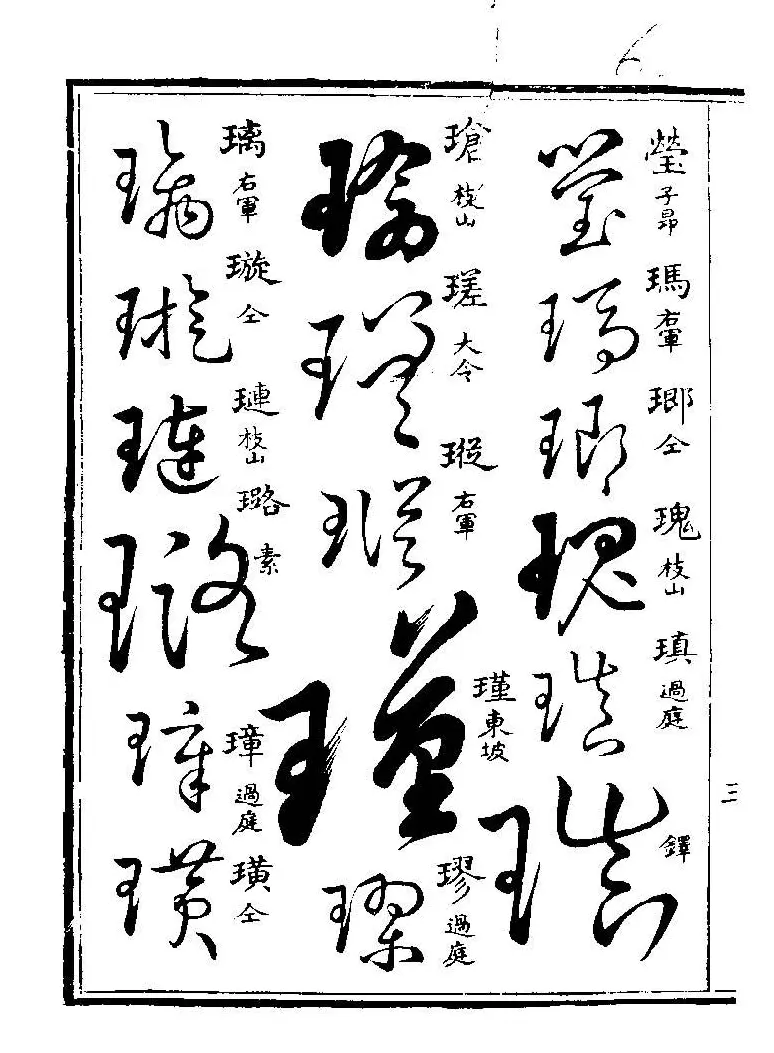 瑩 子昂 瑪 右軍 瑯 仝 瑰 枝山 瑱 過庭 鐸
瑲 枝山 瑳 大令 瑽 右軍 瑾 東坡 璆 過庭
璃 右軍 璇 仝 璉 枝山 璐 素 璋 過庭 璜 仝
三
6